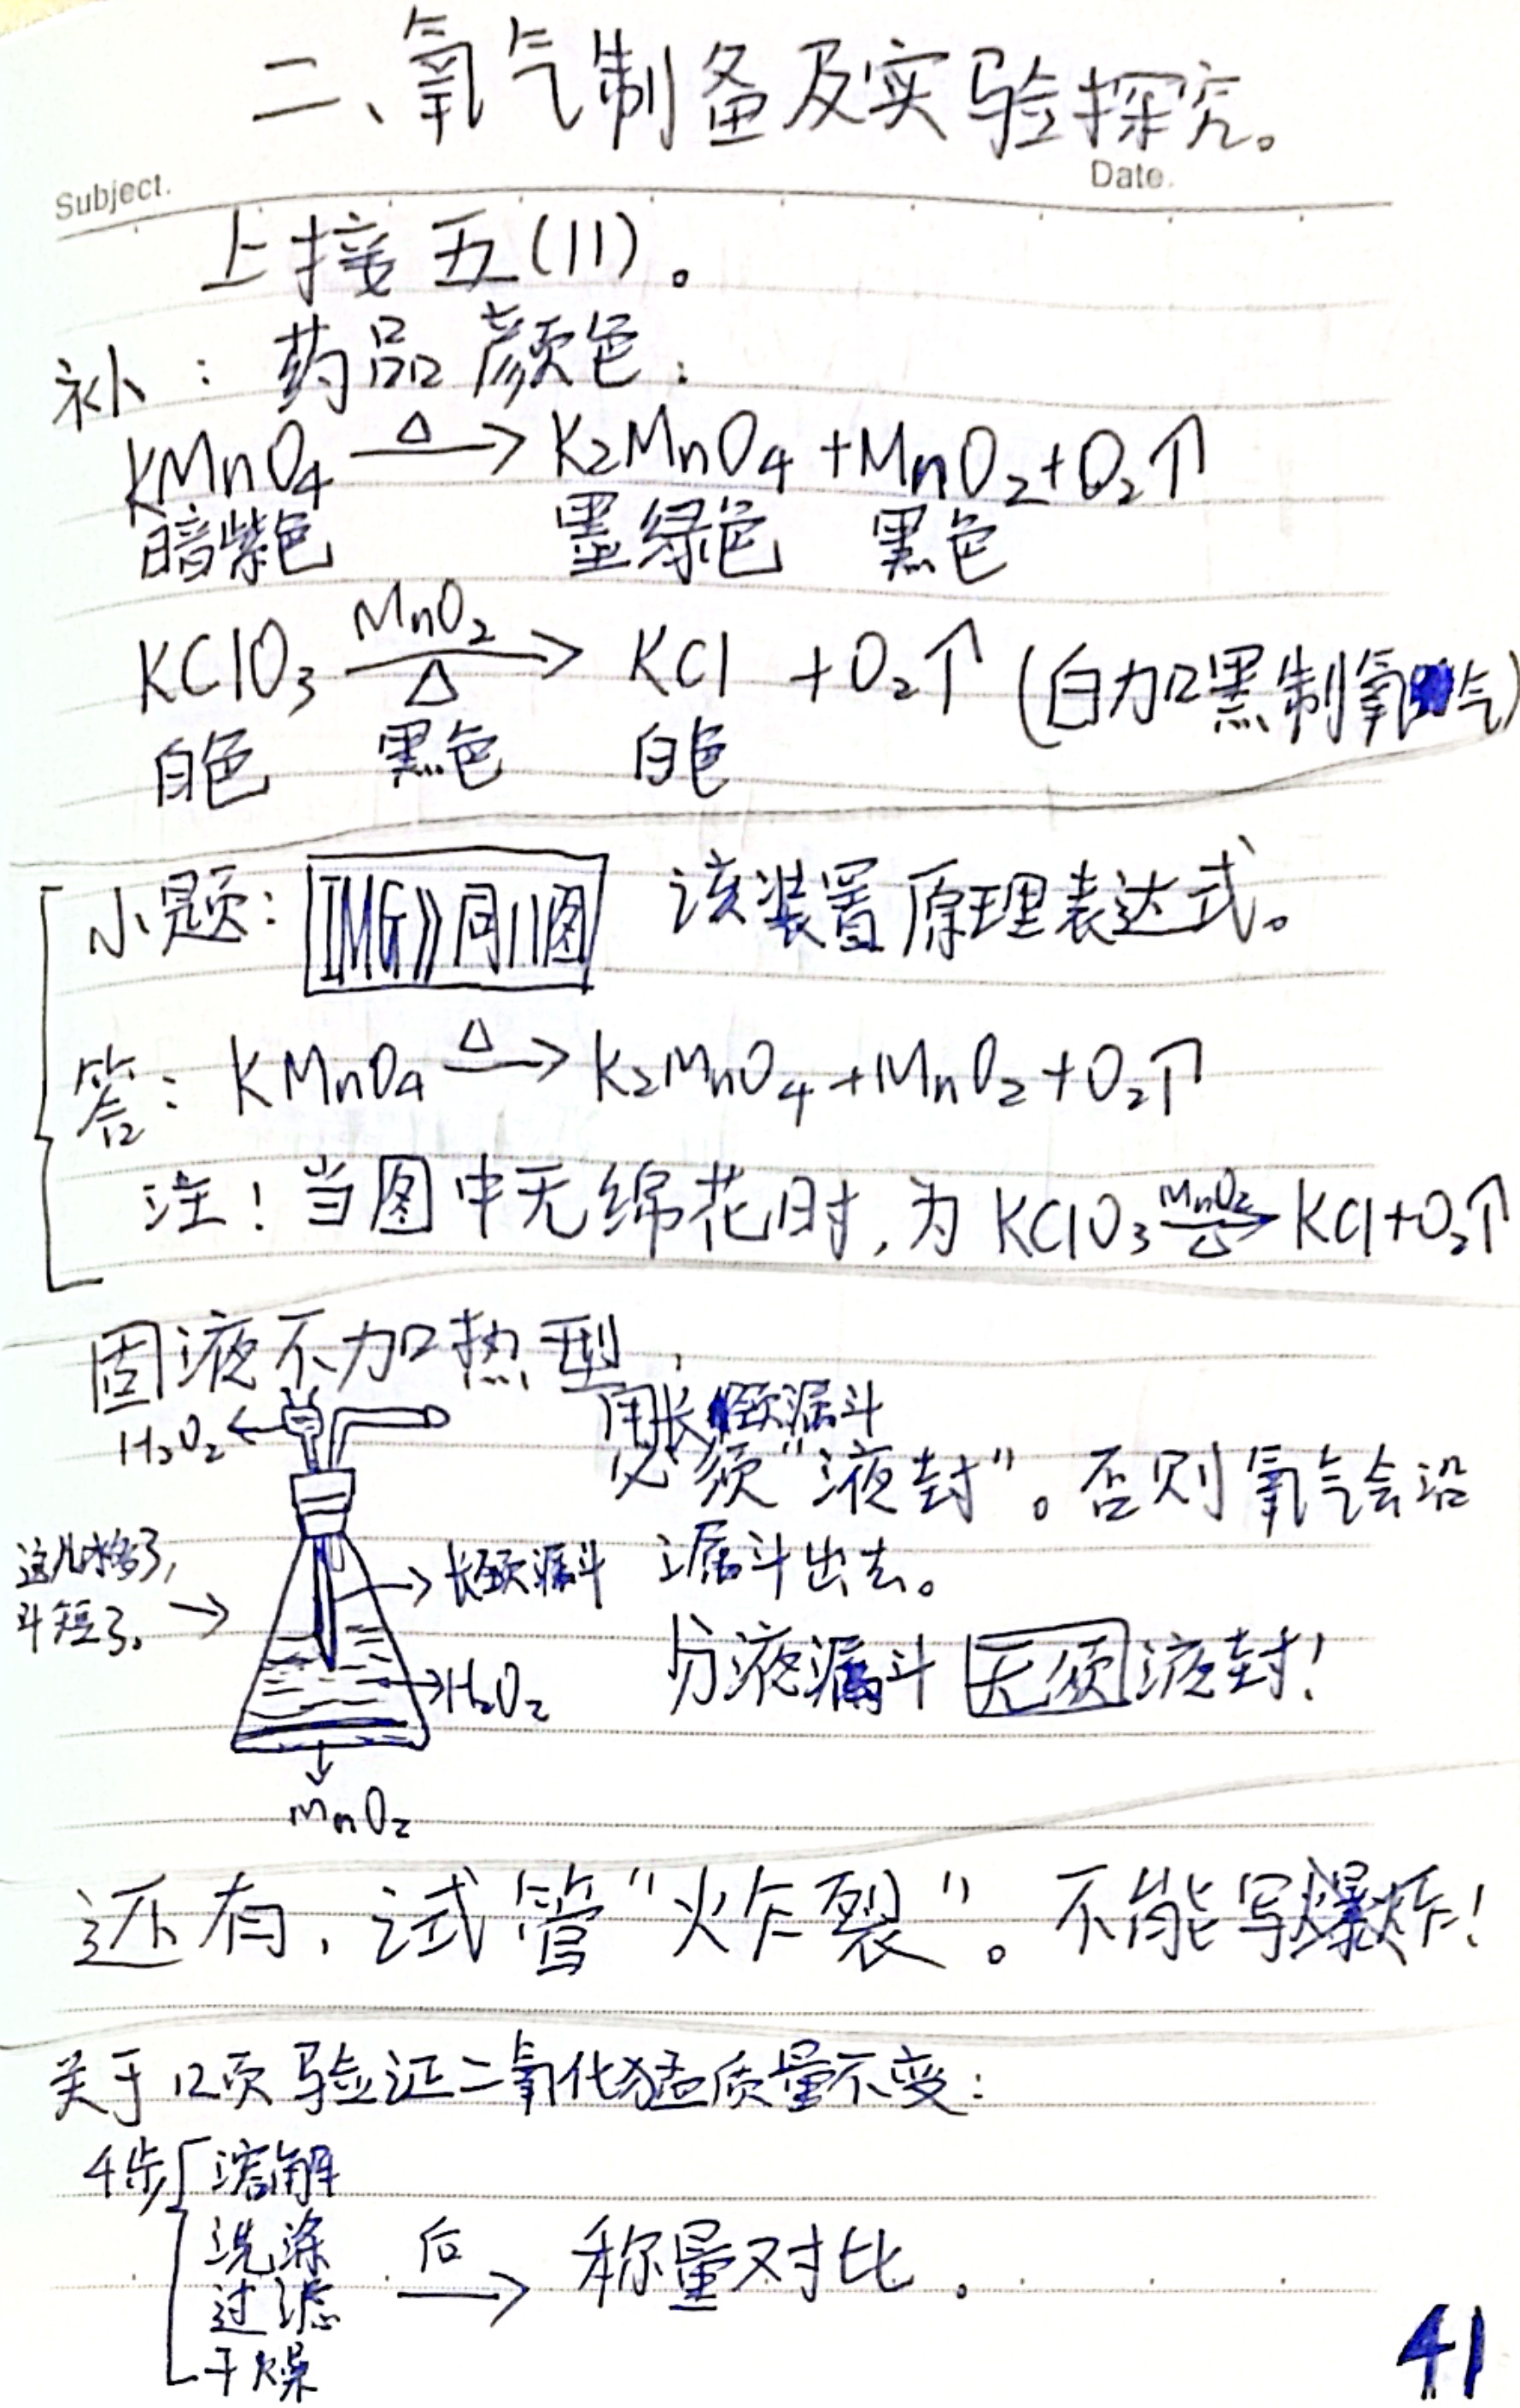 二、氧气制备及实验探究。
Subject.
Date.
上接五(11)。
补：药品颜色：
KMnO₄ —△→ K₂MnO₄+MnO₂+O₂↑
暗紫色 墨绿色 黑色
KClO₃ —MnO₂/△→ KCl +O₂↑ (白加黑制氧气)
白色 黑色 白色
小题：IMG》同11图 该装置原理表达式。
答：KMnO₄ —△→ K₂MnO₄+MnO₂+O₂↑
注！当图中无绵花时，为KClO₃ —MnO₂/△→ KCl+O₂↑
固液不加热型，
H₂O₂
用长颈漏斗
必须“液封”。否则氧气会沿
漏斗出去。
这儿
斗短了。→
长颈漏斗
分液漏斗无须液封！
H₂O₂
MnO₂
还有，试管“炸裂”。不能写爆炸！
关于12页验证二氧化锰质量不变：
4步 溶解
洗涤
过滤
干燥
后→ 称量对比。
41